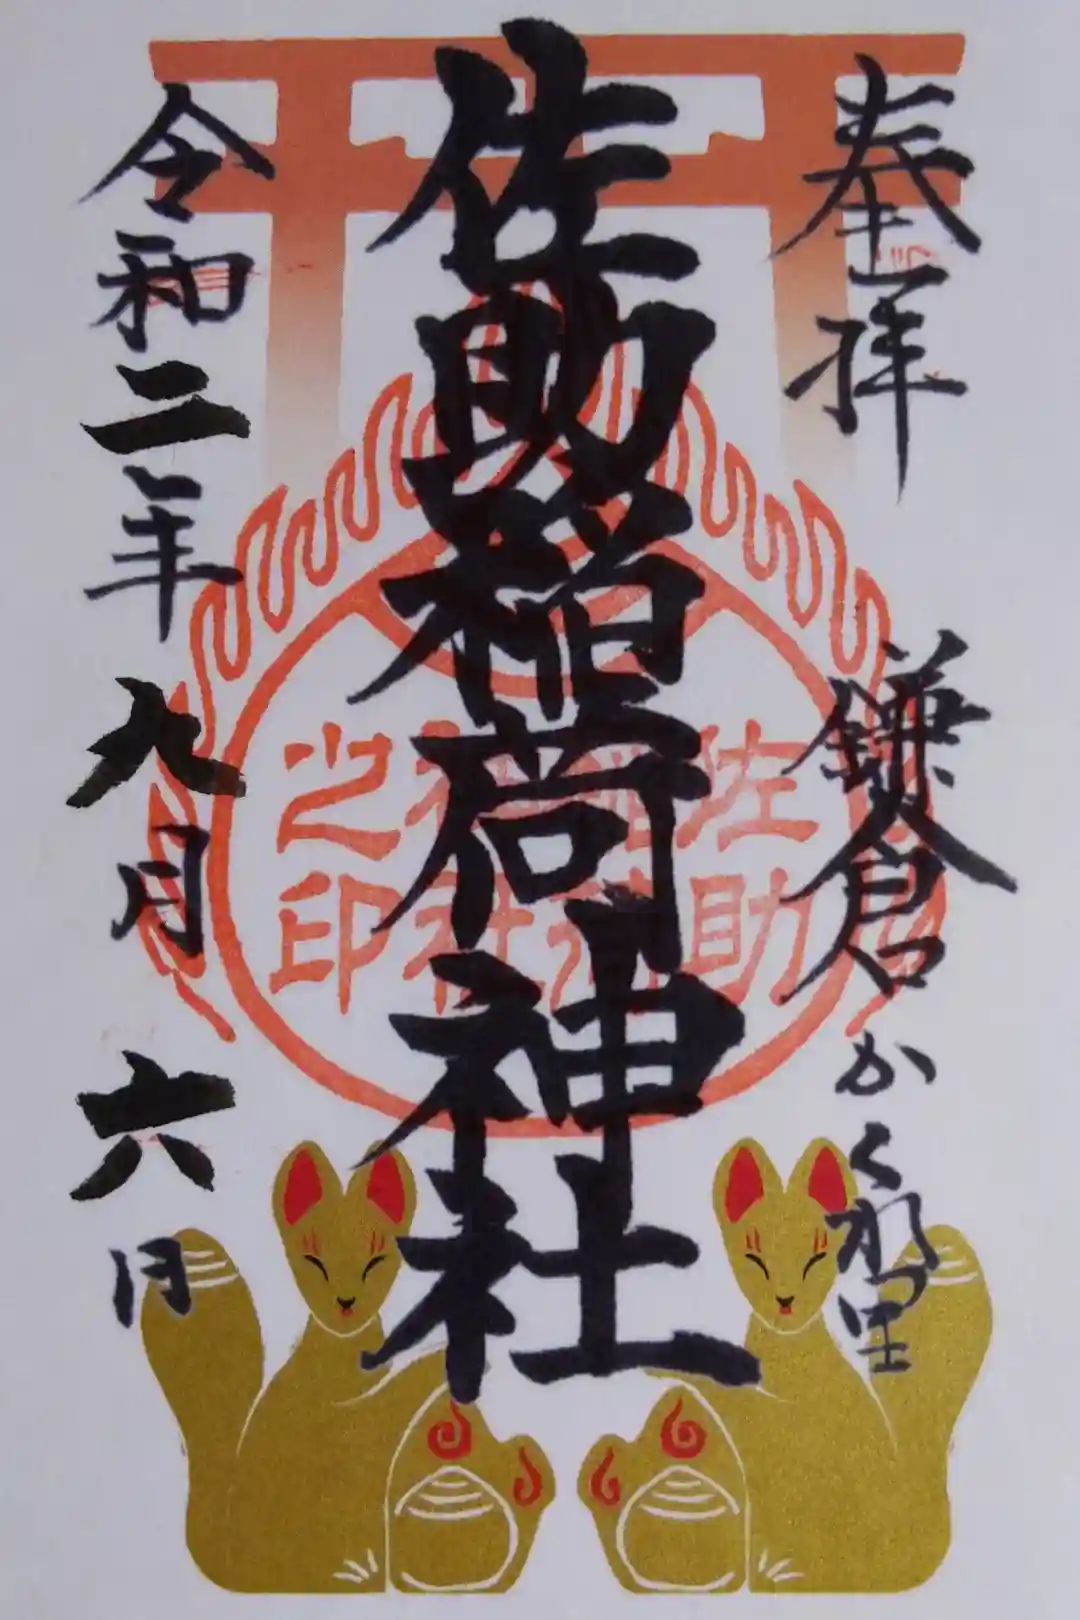 奉拝
鎌倉かくれ里
佐助稲荷神社
令和二年九月六日
佐助
稲荷
神社
之印